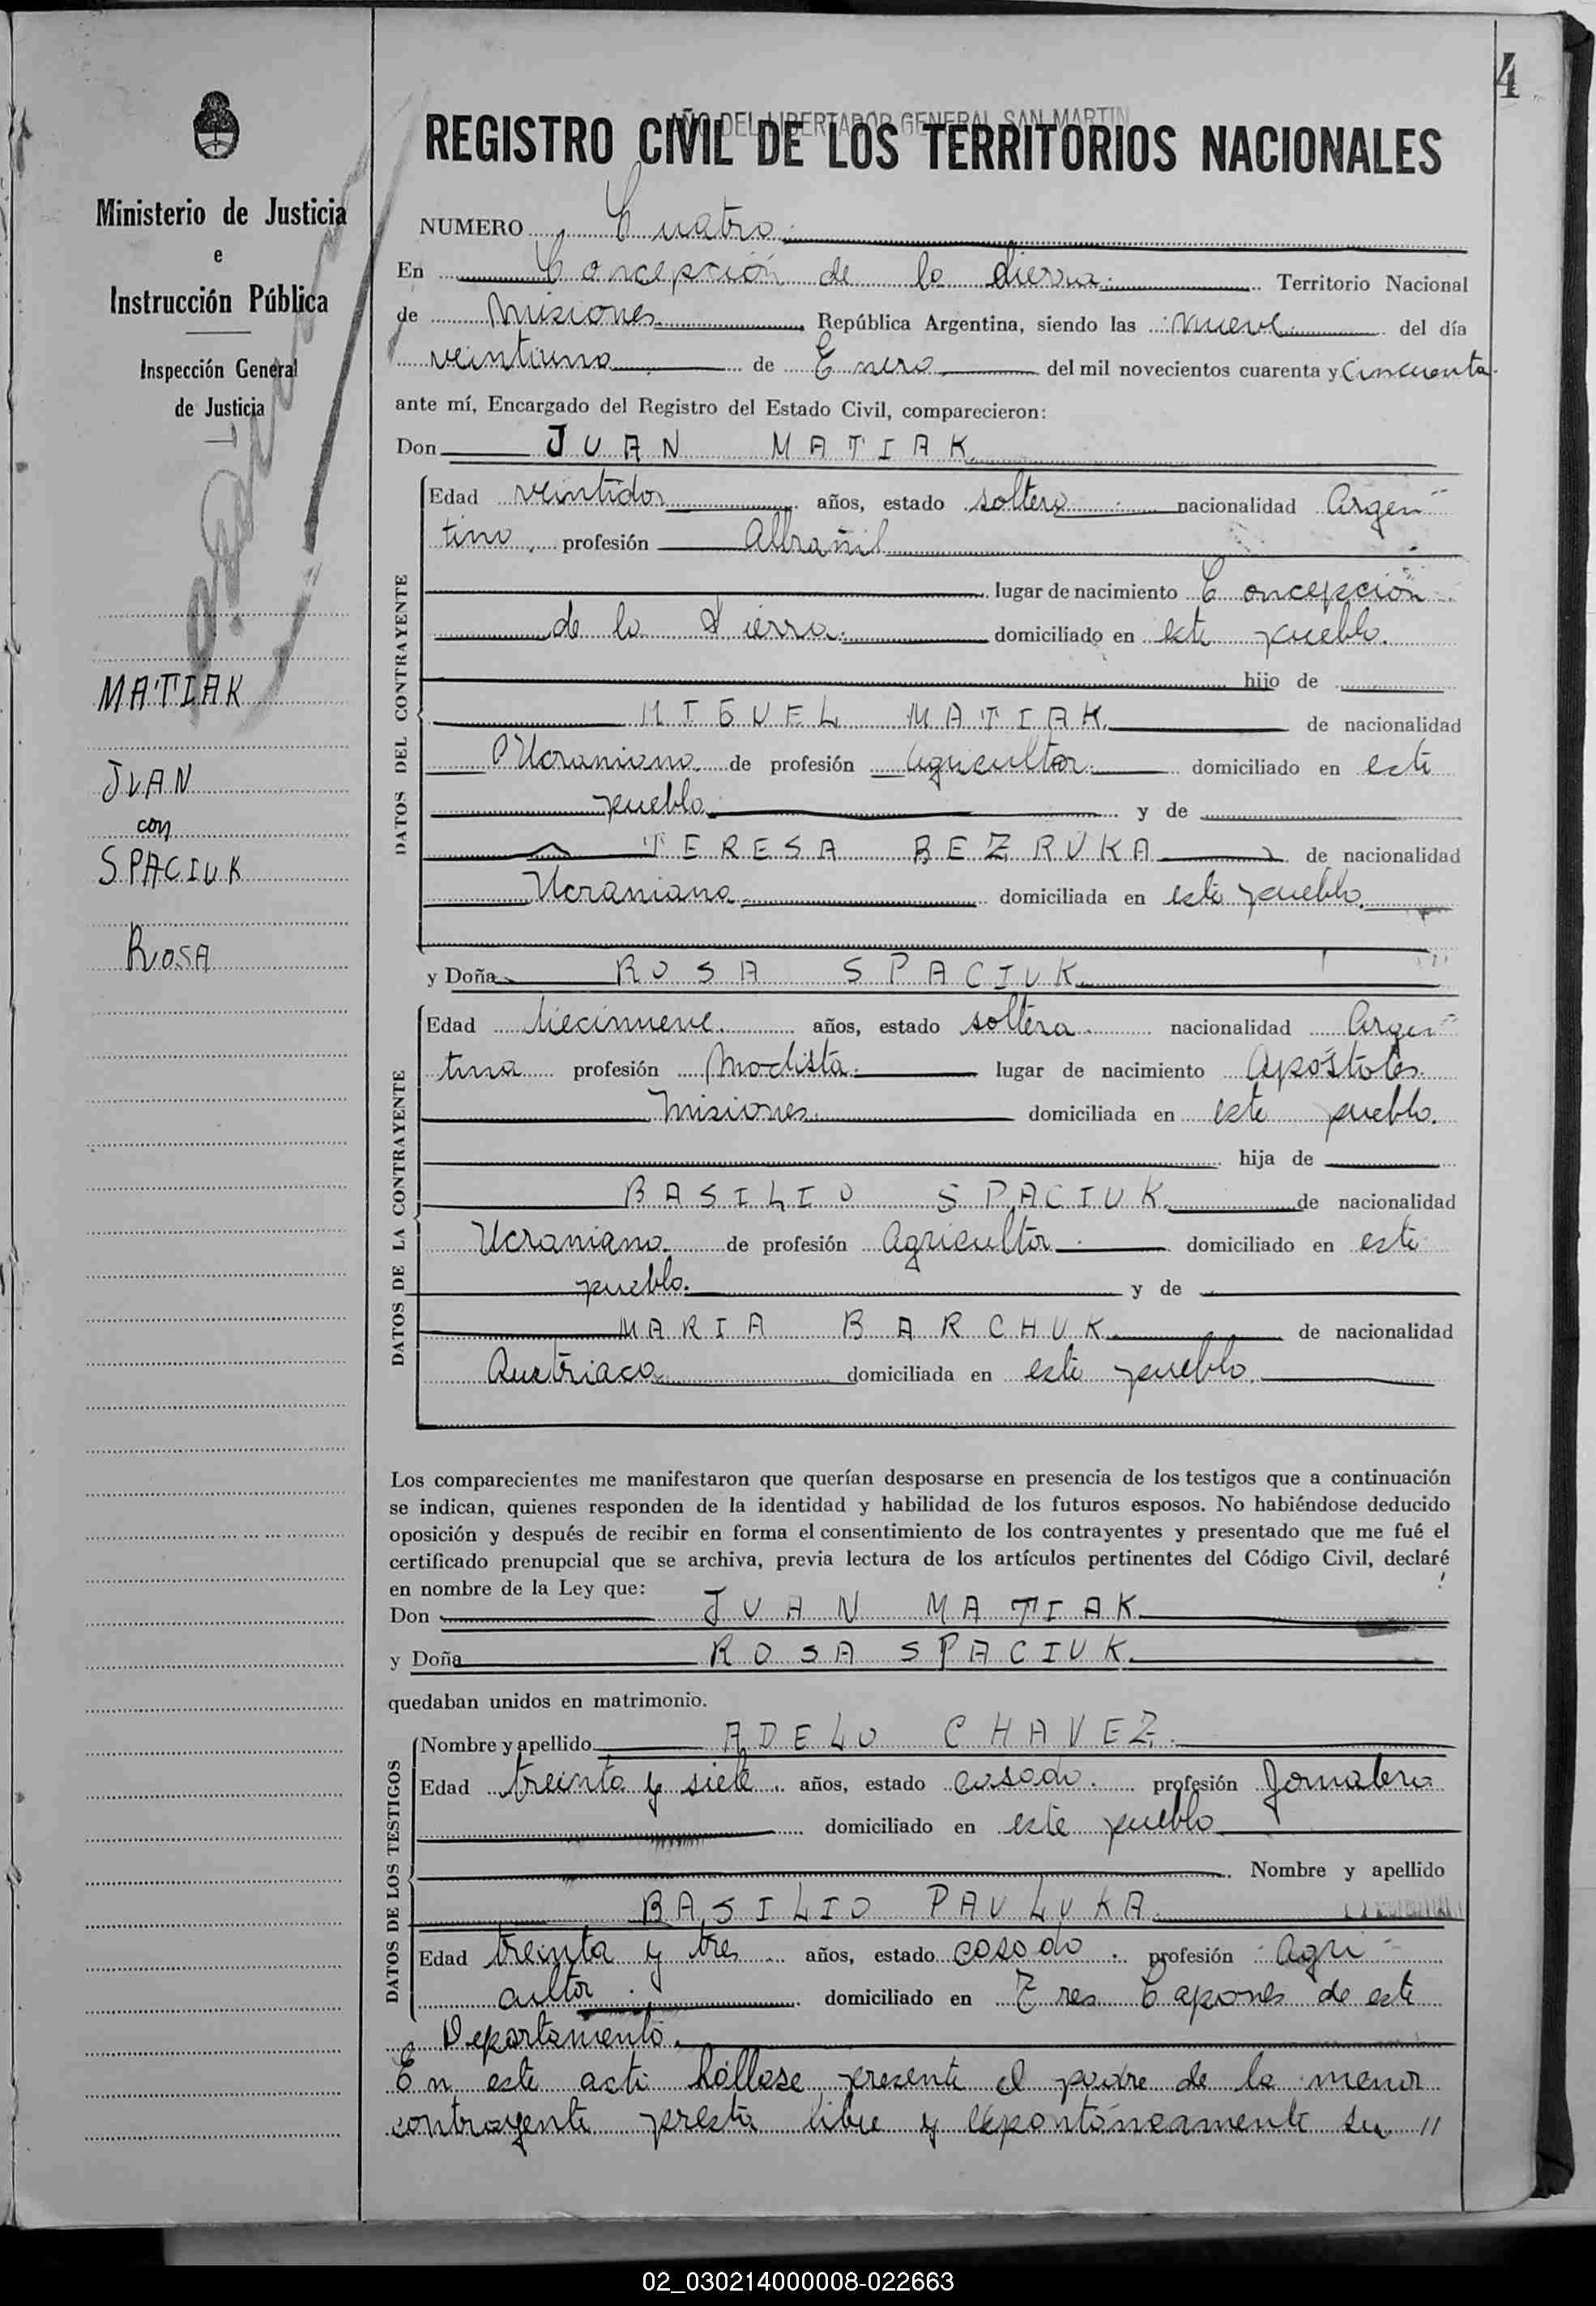 4
AÑO DEL LIBERTADOR GENERAL SAN MARTIN
REGISTRO CIVIL DE LOS TERRITORIOS NACIONALES
Ministerio de Justicia
e
Instrucción Pública
Inspección General
de Justicia
MATIAK
JUAN
con
SPACIUK
ROSA
NUMERO Cuatro.
En Concepción de la Sierra. Territorio Nacional
de Misiones. República Argentina, siendo las nueve del día
veintiuno de Enero del mil novecientos cuarenta y Cincuenta.
ante mí, Encargado del Registro del Estado Civil, comparecieron:
Don JUAN MATIAK.
DATOS DEL CONTRAYENTE
Edad veintidos años, estado soltero nacionalidad Argen
tino, profesión Albañil
lugar de nacimiento Concepción
de la Sierra. domiciliado en este pueblo.
hijo de
MIGUEL MATIAK. de nacionalidad
Ucraniano de profesión agricultor. domiciliado en este
pueblo. y de
TERESA BEZRUKA de nacionalidad
Ucraniana. domiciliada en este pueblo.
y Doña ROSA SPACIUK.
DATOS DE LA CONTRAYENTE
Edad diecinueve. años, estado soltera. nacionalidad Argen
tina profesión Modista. lugar de nacimiento Apóstoles
Misiones. domiciliada en este pueblo.
hija de
BASILIO SPACIUK. de nacionalidad
Ucraniano. de profesión Agricultor. domiciliado en este
pueblo. y de
MARIA BARCHUK. de nacionalidad
Austriaca domiciliada en este pueblo.
Los comparecientes me manifestaron que querían desposarse en presencia de los testigos que a continuación
se indican, quienes responden de la identidad y habilidad de los futuros esposos. No habiéndose deducido
oposición y después de recibir en forma el consentimiento de los contrayentes y presentado que me fué el
certificado prenupcial que se archiva, previa lectura de los artículos pertinentes del Código Civil, declaré
en nombre de la Ley que:
Don JUAN MATIAK
y Doña ROSA SPACIUK.
quedaban unidos en matrimonio.
DATOS DE LOS TESTIGOS
Nombre y apellido ADELO CHAVEZ.
Edad treinta y siete. años, estado casado. profesión Jornalero
domiciliado en este pueblo
Nombre y apellido
BASILIO PAULUKA.
Edad treinta y tres años, estado casado. profesión Agri
cultor. domiciliado en Tres Capones de este
Departamento.
En este acto hállase presente el padre de la menor
contrayente presta libre y expontáneamente su "
02_030214000008-022663